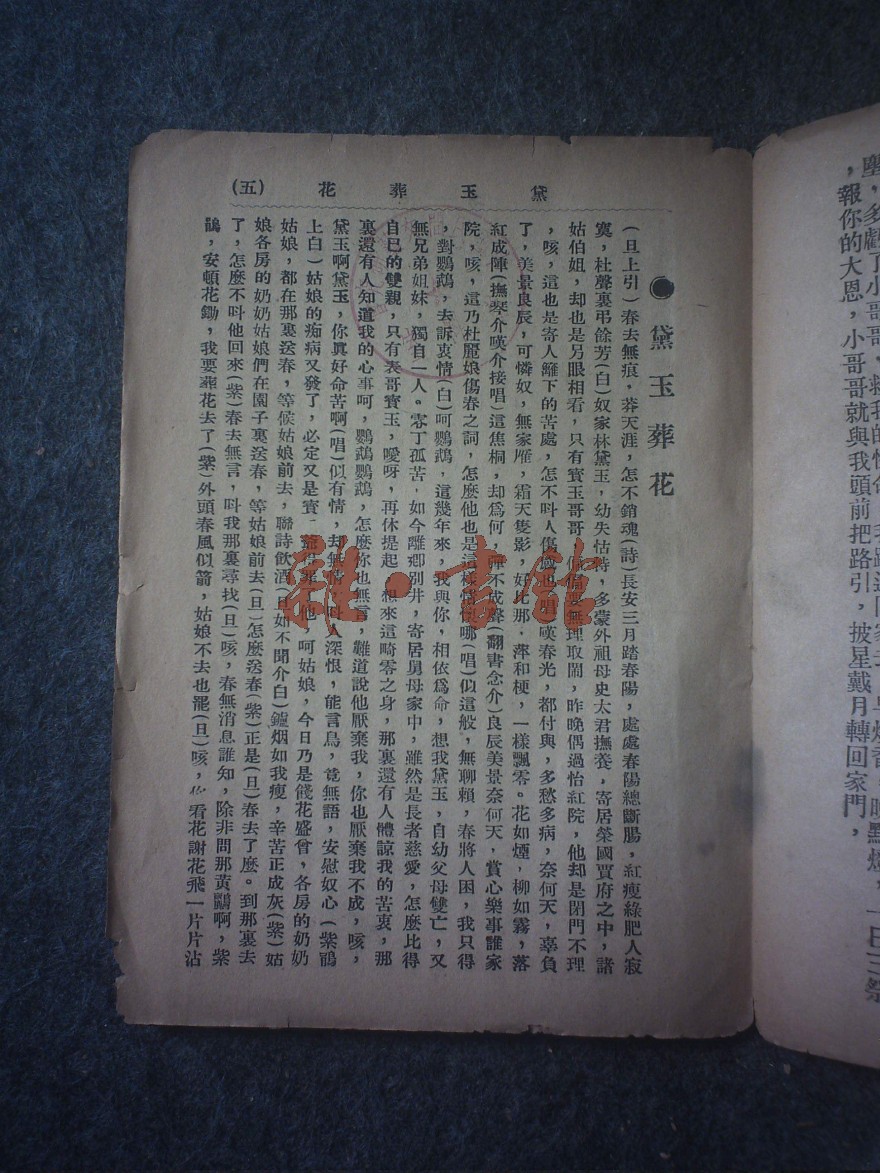 壓，多虧了小哥哥，救我的性命
，報你的大恩，小哥哥就與我頭前把路引，披星戴月轉回家門，
黛玉葬花（五）
●黛玉葬花
（旦上引）春去無痕，莽天涯，怎不銷魂（詩）長安三月踏春陽，處處春陽總斷腸，紅瘦綠肥人寂
寞，杜聲裏弔餘芳（白）奴家林黛玉，幼失怙恃，多蒙外祖母史太君撫養，寄居榮國賈府之中，諸
姑伯姐，却也是另眼相看，只有寶玉哥哥，無理取鬧，昨晚偶過怡紅院，他却是閉門不理
，咳，這也是寄人籬下的苦處，怎不呌人傷嘆春光，都付與，多愁多病，奈何天，辜負
了，美景良辰，可憐奴，無家雁，霜天隻影，好比那，萍和梗，一樣飄零。花如煙，柳如霧，落
紅成陣（撫琴介嘆介接唱）這焦桐，却爲何，彈不成聲（翻書念介）良辰美景奈何天，賞心樂事誰家
院，咳，這乃杜麗娘傷春之詞，怎麼他也是這樣情懷哪（唱）似這般，無聊賴，春將人困，我只得
，對鸚鵡，去訴衷情（白）呵鸚鵡，這幾年來，我與你，相依爲命，想我黛玉，自幼父母雙亡，又
無兄弟姐妹，獨自一人。零丁孤苦，如今離鄉別井，寄居舅母家中，雖然是長者慈愛，怎麼比得
自已的雙親，只有表哥寶玉，噯呀，再休提起，想來這畸零之身，那裏還有人體諒我的苦衷，那
裏還有人知道我的心事呵，鸚鵡鸚鵡，怎麼你也無言，難道說他厭棄我，你也厭棄我不成，咳，
黛玉啊黛玉，你眞好命苦啊（唱）似有情，却無情，呌人深恨，能言鳥，竟無語，安慰奴心（紫鵑
上白）姑娘的痴病又發了，必定又是寶二爺他，呵姑娘，今日乃是餞花盛會，各房的奶奶
姑娘，都在那裏送春，等候姑娘前去，聯詩飲酒（旦如不聞介白）鑪烟如我瘦，辛苦正成灰（紫）姑
娘各房的奶奶姑娘們在園子裏送春，等姑娘前去（旦）怎麼送春（紫）正是（旦）春去了麼。到那裏去
了，怎麼不呌他回來（紫）春去無言，呌我那裏尋找（旦）咳，春無消息誰知，除非問那黃鸝啊，紫
鵑，安頓花鋤，我要葬花去了（紫）外頭春風似箭，姑娘不去也罷（旦）咳，你看花謝花飛一片片沾
雜·書館